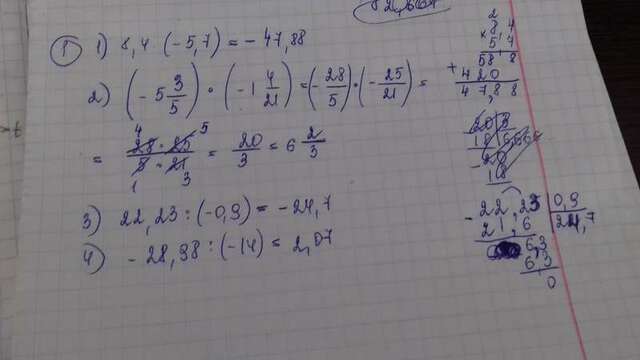 ① 1) 8,4 · (-5,7) = - 47,88
2) (-5 3/5) · (-1 4/21) = (-28/5) · (-25/21) =
= 28 · 25 / 5 · 21 = 20/3 = 6 2/3
3) 22,23 : (-0,9) = - 24,7
4) - 28,98 : (-14) = 2,07
2
8,4
×
58 8
+ 420
47,88
- 22,23 | 0,9
21,6 | 24,7
6,3
63
0